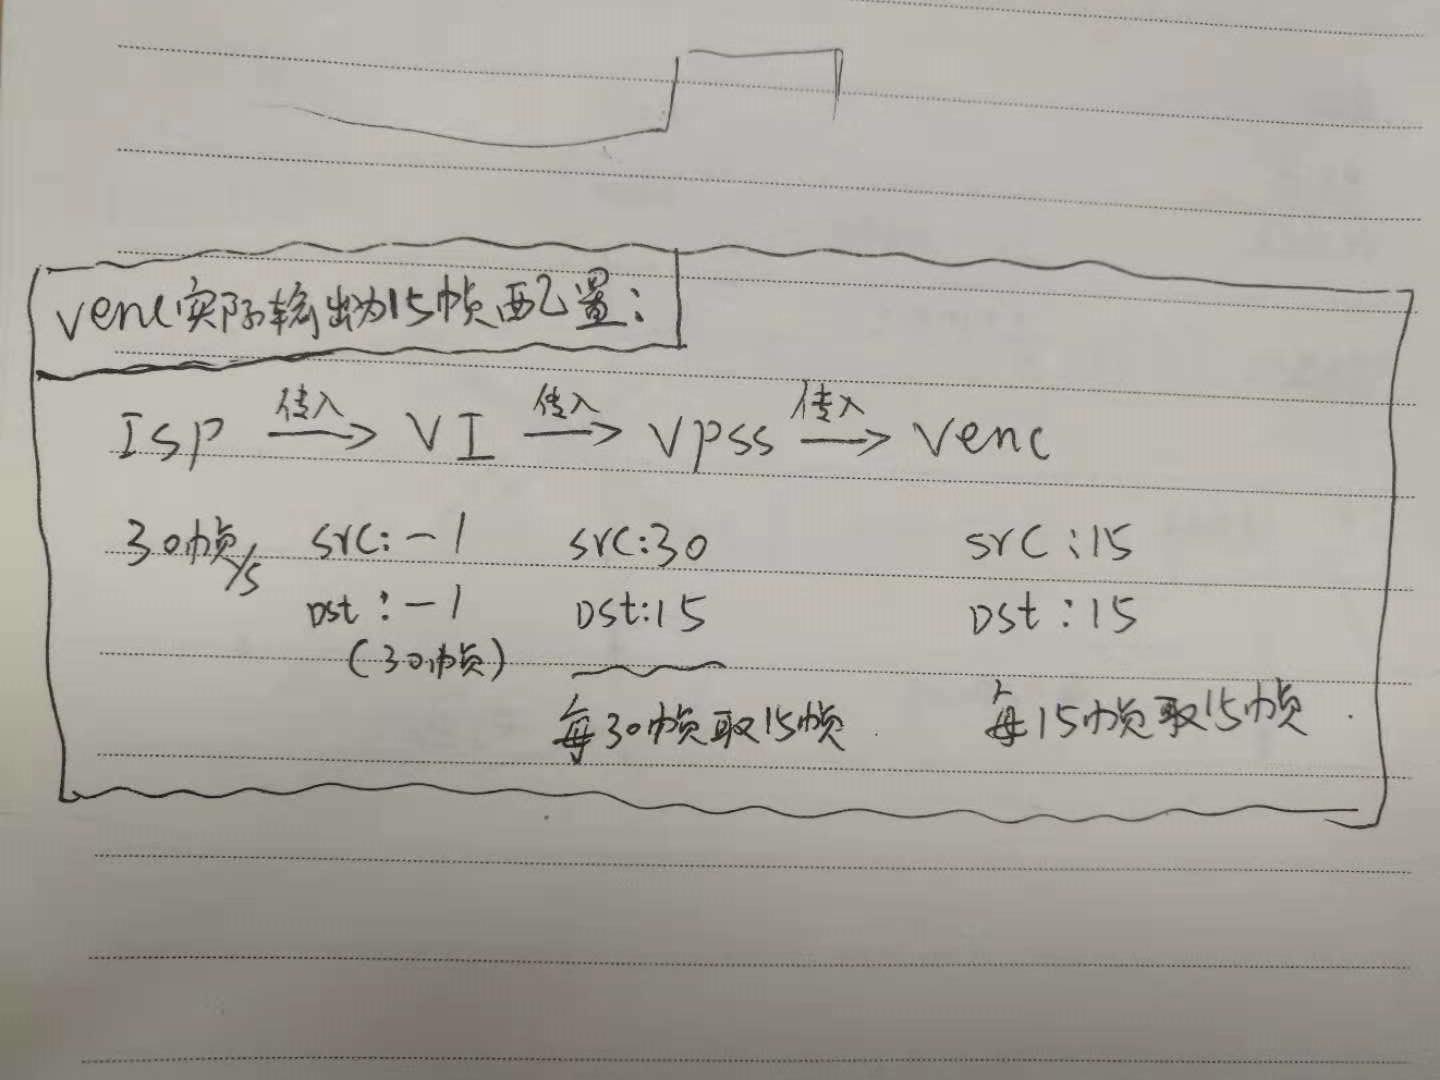 venc实际输出为15帧配置:
传入 传入 传入
ISP → VI → Vpss → Venc
30帧/s src:-1 src:30 src:15
Dst:-1 Dst:15 Dst:15
(30帧)
每30帧取15帧. 每15帧取15帧.